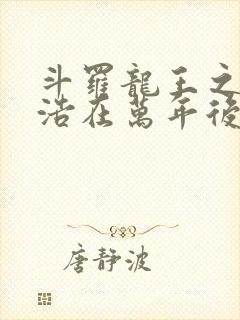 斗羅龍王之
浩在萬年後
唐靜波